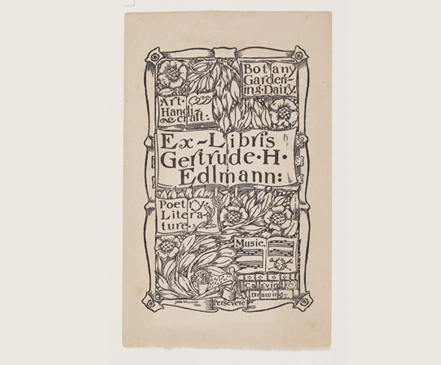 Botany
Garden-
ing. Dairy.
Art.
Handi-
craft:
Ex-Libris
Gertrude. H.
Edlmann:
Poetry.
Litera-
ture.
Music.
Drawing.
Persevere